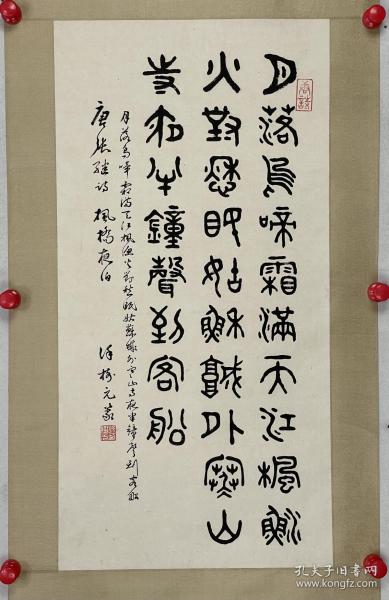 月落烏啼霜滿天江楓漁
火對愁眠姑蘇城外寒山
寺夜半鐘聲到客船
月落烏啼霜滿天江楓漁火對愁眠姑蘇城外寒山寺夜半鐘聲到客船
唐張繼詩 楓橋夜泊
元篆
孔夫子旧书网